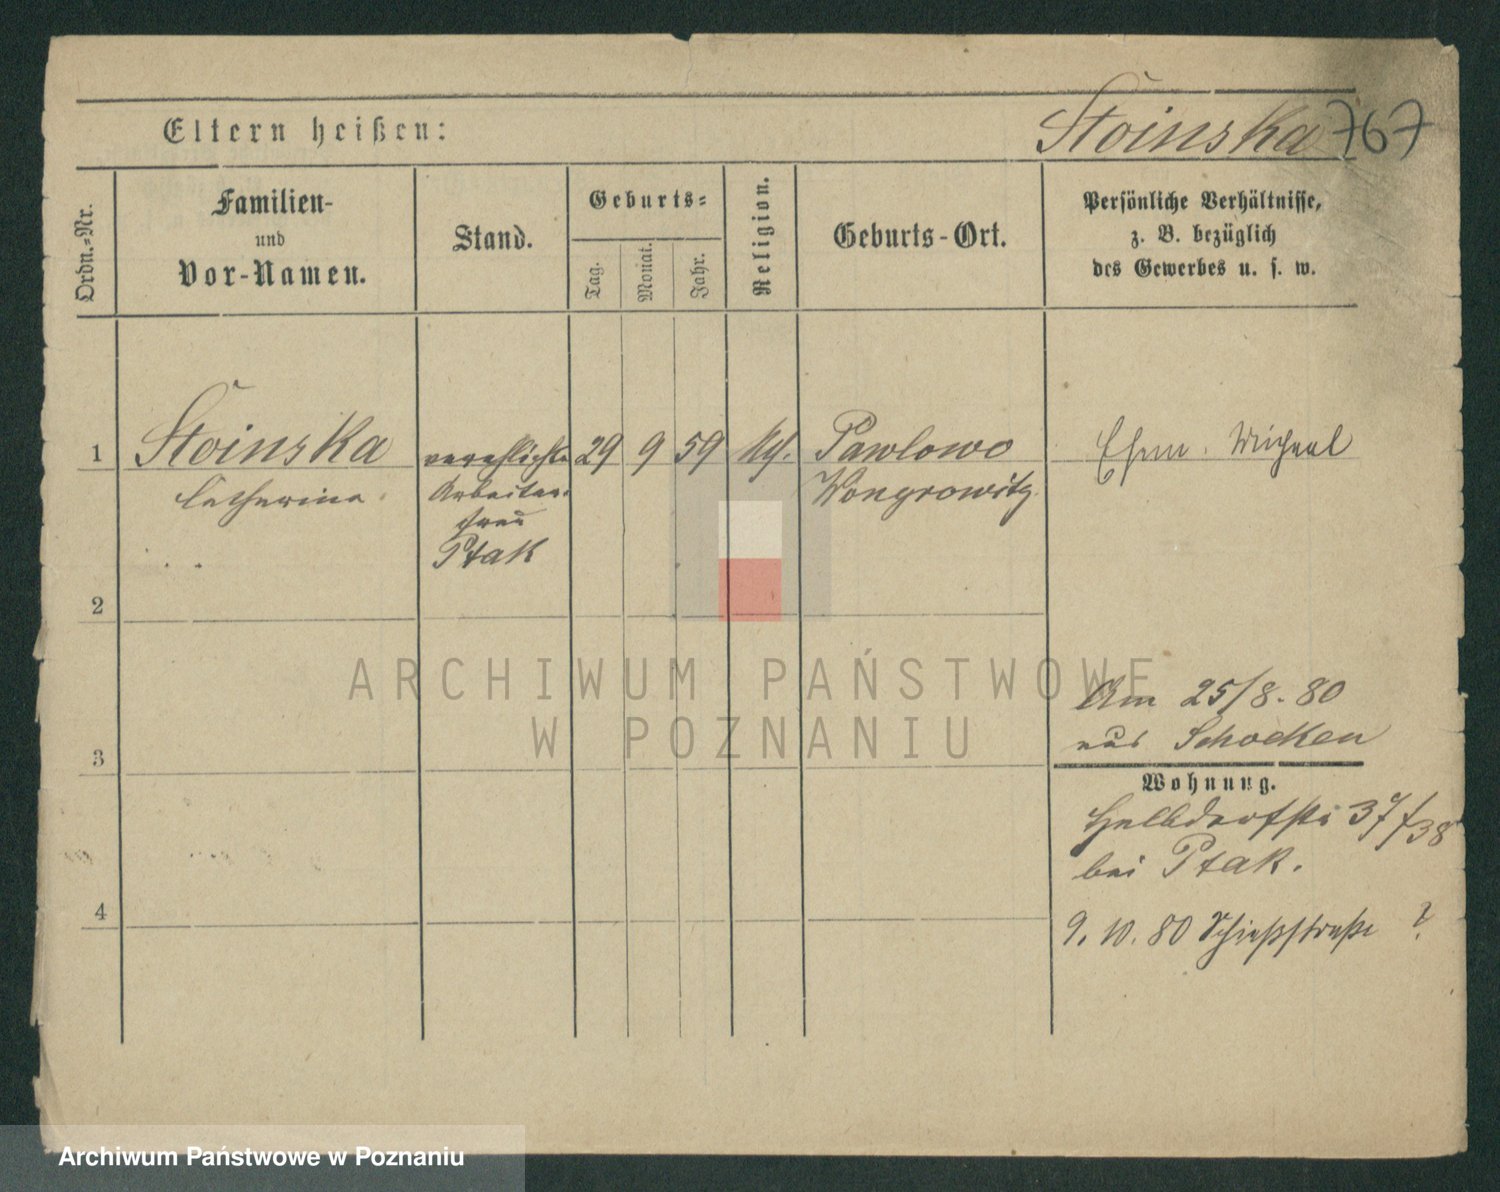 Eltern heißen:
Stoinska 767
Ordn.-Nr.
Familien-
und
Vor-Namen.
Stand.
Geburts-
Tag.
Monat.
Jahr.
Religion.
Geburts-Ort.
Persönliche Verhältnisse,
z. B. bezüglich
des Gewerbes u. s. w.
1 Stoinska verehlichte 29 9 59 kth. Pawlowo Ehem. Michael
Catharina Arbeiter- Wongrowitz
frau
Ptak
2
ARCHIWUM PAŃSTWOWE
W POZNANIU
Am 25/8. 80
aus Schocken
3
Wohnung.
Halbdorfstr 37/38
bei Ptak.
4
9. 10. 80 Schießstraße 2.
Archiwum Państwowe w Poznaniu